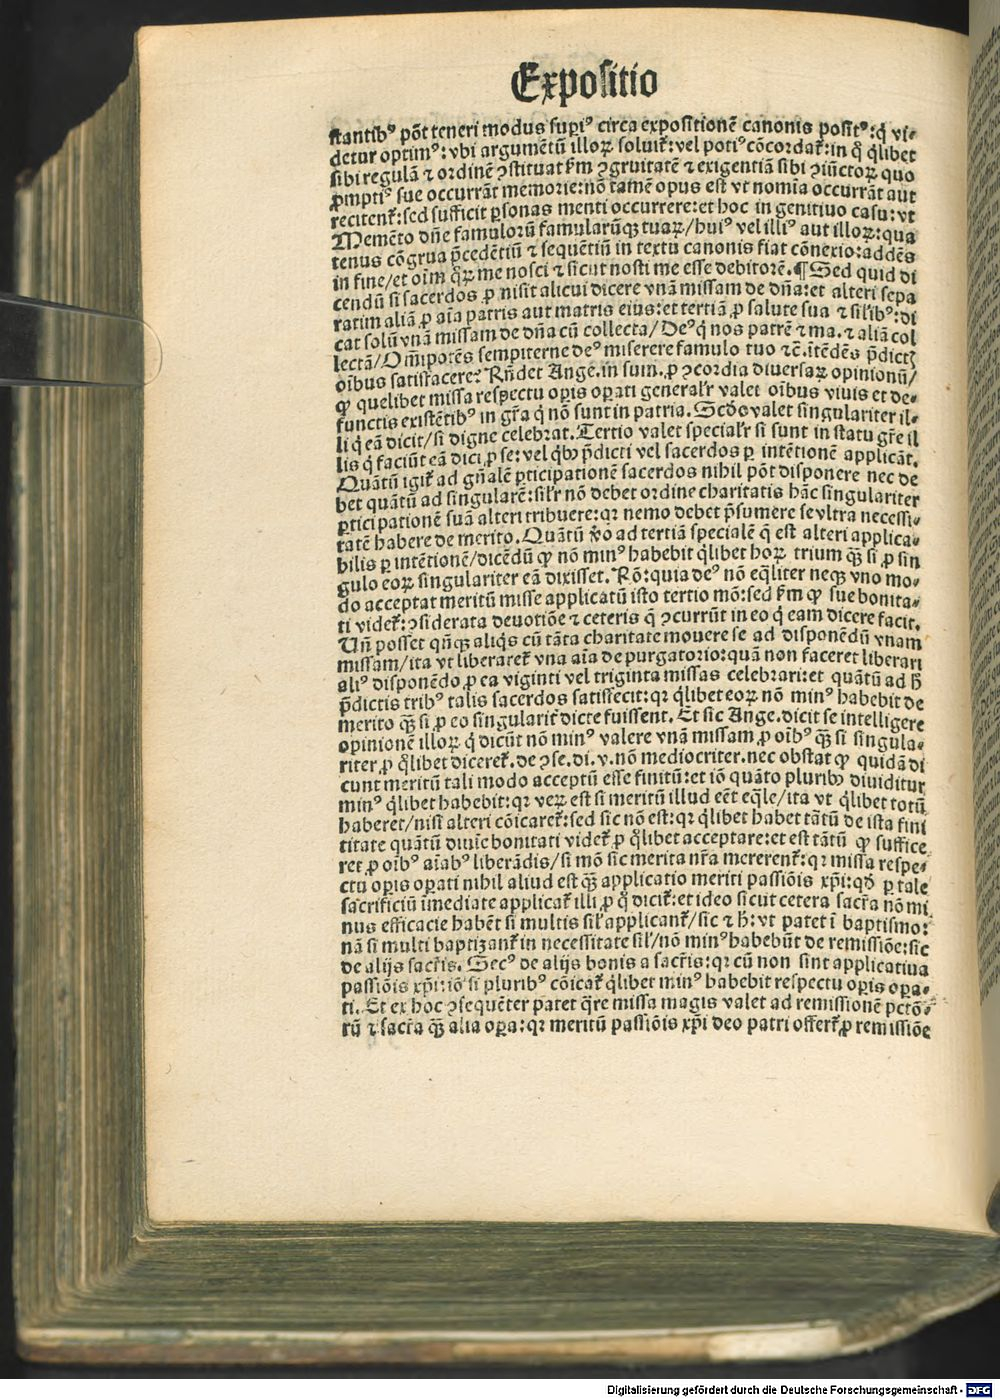 Expositio
ſtantibꝰ põt teneri modus ſupiꝰ circa expoſitionẽ canonis poſitꝰ: q̃ vi⸗
detur optimꝰ: vbi argumẽtũ illoꝝ ſoluit᷑: vel potiꝰ cõcordat᷑: in q̊ q̃libet
ſibi regulã ⁊ ordinẽ ꝯſtituat ẜm ꝯgruitatẽ ⁊ exigentiã ſibi ꝯiũctoꝝ quo
ꝓmptiꝰ ſue occurrãt memorie: nõ tamẽ opus eſt vt nomĩa occurrãt aut
recitent᷑: ſed ſufficit ꝑſonas menti occurrere: et hoc in genitiuo caſu: vt
Memẽto dñe famulorũ famularũqꝫ tuaꝝ/ huiꝰ vel illiꝰ aut illoꝝ: qua
tenus cõgrua p̃cedẽtiũ ⁊ ſequẽtiũ in textu canonis fiat cõnexio: addẽs
in fine/ et oĩm q̃ꝝ me noſci ⁊ ſicut noſti me eſſe debitorẽ. ¶ Sed quid di
cendũ ſi ſacerdos ꝓmiſit alicui dicere vnã miſſam de dña: et alteri ſepa
ratim aliã ꝓ aĩa patris aut matris eius: et tertiã ꝓ ſalute ſua ⁊ ſil'ibꝰ: di
cat ſolũ vnã miſſam de dña cũ collecta/ Deꝰ q̃ nos patrẽ ⁊ ma. ⁊ aliã col
lectã/ Oĩpotẽs ſempiterne deꝰ miſerere famulo tuo ⁊c̃. ĩtẽdẽs p̃dictꝭ
oĩbus ſatiſfacere? Rñdet Ange. in ſum. ꝓ ꝯcordia diuerſaꝝ opinionũ/
ꝙ quelibet miſſa reſpectu opis opati general'r valet oĩbus viuis et de⸗
functis exiſtẽtibꝰ in gr̃a q̃ nõ ſunt in patria. Scd̃o valet ſingulariter il⸗
li q̃ eã dicit/ ſi digne celebrat. Tertio valet ſpecial'r ſi ſunt in ſtatu gr̃e il
lis q̃ faciũt eã dici ꝓ ſe: vel q̃bꝰ p̃dicti vel ſacerdos ꝑ intẽtionẽ applicãt.
Quãtũ igit᷑ ad gñalẽ ꝑticipationẽ ſacerdos nihil põt diſponere nec de
bet quãtũ ad ſingularẽ: ſil'r nõ debet ordine charitatis hãc ſingulariter
ꝑticipationẽ ſuã alteri tribuere: qꝛ nemo debet p̃ſumere ſe vltra neceſſi⸗
tatẽ habere de merito. Quãtũ v̊o ad tertiã ſpecialẽ q̃ eſt alteri applica⸗
bilis ꝑ intẽtionẽ/ dicẽdũ ꝙ nõ minꝰ habebit q̃libet hoꝝ trium qꝫ̃ ſi ꝓ ſin
gulo eoꝝ ſingulariter eã dixiſſet. Rõ: quia deꝰ nõ eq̃liter neqꝫ vno mo⸗
do acceptat meritũ miſſe applicatũ iſto tertio mõ: ſed ẜm ꝙ ſue bonita⸗
ti videt᷑: ꝯſiderata deuotiõe ⁊ ceteris q̃ ꝯcurrũt in eo q̃ eam dicere facit.
Vñ poſſet qñqꝫ aliq̃s cũ tãta charitate mouere ſe ad diſponẽdũ vnam
miſſam/ ita vt liberaret᷑ vna aĩa de purgatorio: quã non faceret liberari
aliꝰ diſponẽdo ꝓ ea viginti vel triginta miſſas celebrari: et quãtũ ad h̃
p̃dictis tribꝰ talis ſacerdos ſatiſfecit: qꝛ q̃libet eoꝝ nõ minꝰ habebit de
merito qꝫ̃ ſi ꝓ eo ſingularit᷑ dicte fuiſſent. Et ſic Ange. dicit ſe intelligere
opinionẽ illoꝝ q̃ dicũt nõ minꝰ valere vnã miſſam ꝓ oĩbꝰ qꝫ̃ ſi ſingula⸗
riter ꝓ q̃libet diceret᷑. de ꝯſe. di. v. nõ mediocriter. nec obſtat ꝙ quidã di
cunt meritũ tali modo acceptũ eſſe finitũ: et iõ quãto pluribꝰ diuiditur
minꝰ q̃libet habebit: qꝛ veꝝ eſt ſi meritũ illud eẽt eq̃le/ ita vt q̃libet totũ
haberet/ niſi alteri cõicaret᷑: ſed ſic nõ eſt: qꝛ q̃libet habet tãtũ de iſta fini
titate quãtũ diuĩe bonitati videt᷑ ꝓ q̃libet acceptare: et eſt tãtũ ꝙ ſuffice
ret ꝓ oĩbꝰ aĩabꝰ liberãdis/ ſi mõ ſic merita nr̃a mererent᷑: qꝛ miſſa reſpe⸗
ctu opis opati nihil aliud eſt qꝫ̃ applicatio meriti paſſiõis xp̃i: qd̃ ꝑ tale
ſacrificiũ ĩmediate applicat᷑ illi ꝓ q̃ dicit᷑: et ideo ſicut cetera ſacr̃a nõ mi
nus efficacie habẽt ſi multis ſil' applicant᷑/ ſic ⁊ h̃: vt patet ĩ baptiſmo:
nã ſi multi baptizant᷑ in neceſſitate ſil'/ nõ minꝰ habebũt de remiſſiõe: ſic
de alijs ſacr̃is. Secꝰ de alijs bonis a ſacr̃is: qꝛ cũ non ſint applicatiua
paſſiõis xp̃i: iõ ſi pluribꝰ cõicat᷑ q̃libet minꝰ habebit reſpectu opis opa⸗
ti. Et ex hoc ꝯſequẽter patet q̃re miſſa magis valet ad remiſſionẽ pctõ⸗
rũ ⁊ ſacr̃a qꝫ̃ alia opa: qꝛ meritũ paſſiõis xp̃i deo patri offert᷑ ꝓ remiſſiõe
Digitalisierung gefördert durch die Deutsche Forschungsgemeinschaft - DFG